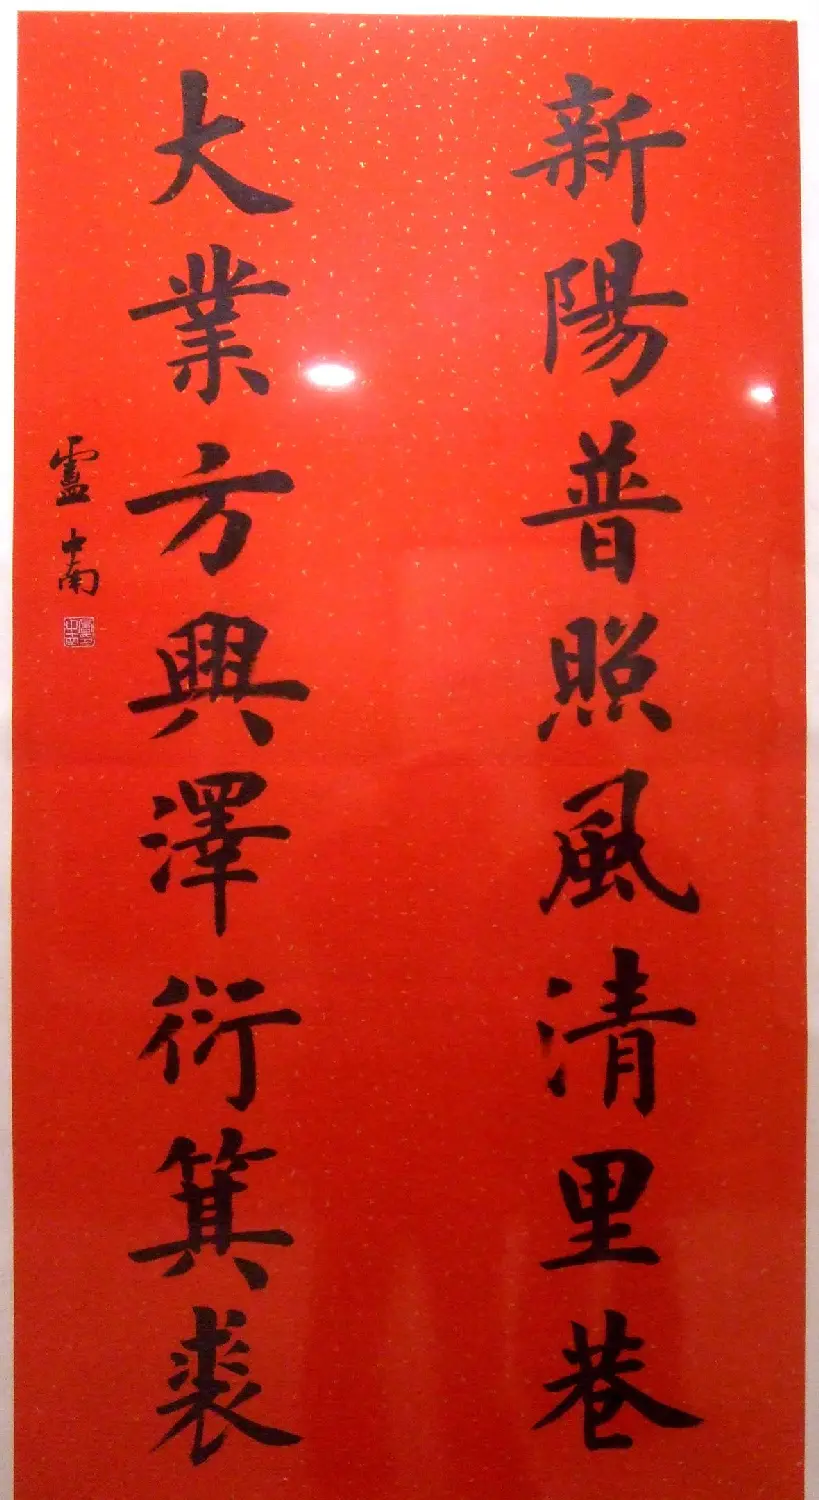 新陽普照風清里巷
大業方興澤衍箕裘
盧中南